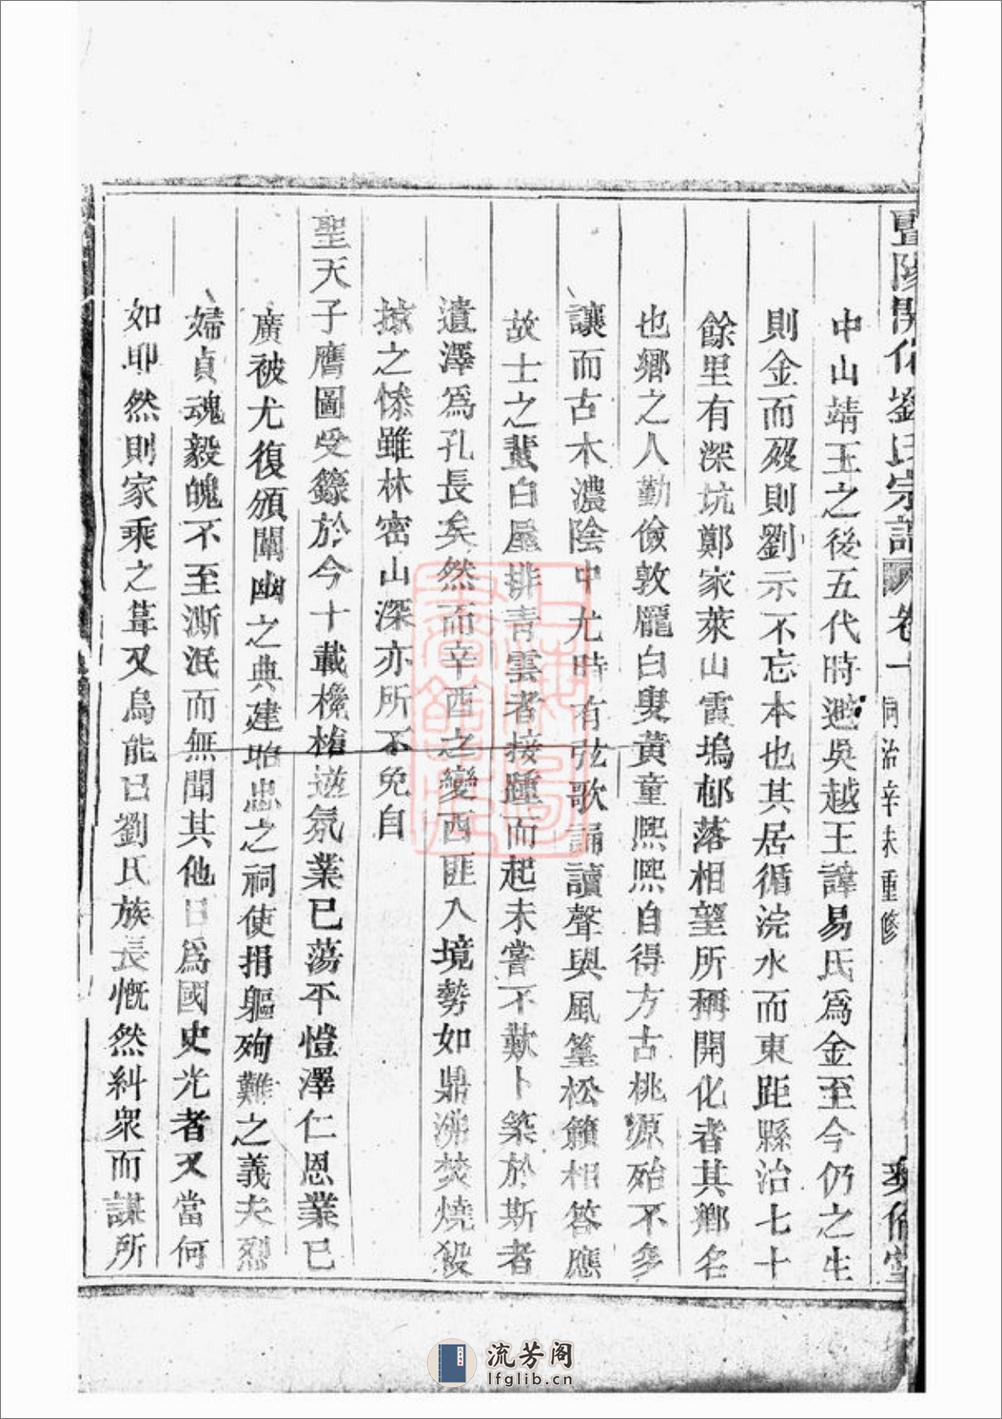 暨陽開化劉氏宗譜 卷一 同治辛未重修
中山靖王之後五代時避吳越王諱易氏爲金至今仍之生
則金而歿則劉示不忘本也其居循浣水而東距縣治七十
餘里有深坑鄭家萊山霞塢邨落相望所稱開化者其鄉名
也鄉之人勤儉敦龐白叟黃童熙熙自得方古桃源殆不多
讓而古木濃陰中尤時有弦歌誦讀聲與風篁松籟相答應
故士之蜚白屋排青雲者接踵而起未嘗不歎卜築於斯者
遺澤爲孔長矣然而辛酉之變西匪入境勢如鼎沸焚燒殺
掠之慘雖林密山深亦所不免自
聖天子膺圖受籙於今十載欃槍逆氛業已蕩平愷澤仁恩業已
廣被尤復頒闡幽之典建昭忠之祠使捐軀殉難之義夫烈
婦貞魂毅魄不至澌泯而無聞其他日爲國史光者又當何
如耶然則家乘之葺又烏能已劉氏族長慨然糾衆而謀所
流芳阁
lfglib.cn